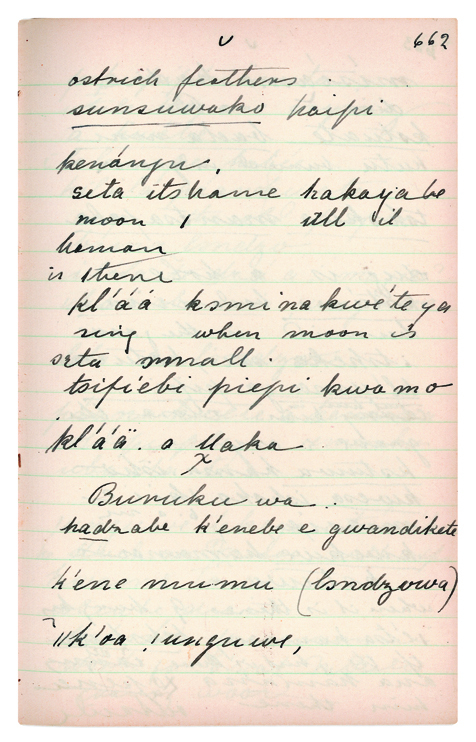 v 662
ostrich feathers
sunsuwako haipi
kenángu,
seta itshame hakayabe
moon , ill il
haman
is there
kl'áá ksminakwéteya
sing when moon is
seta small.
tsifiebi piepi kwamo
kl'áä. a Maka
x
Buruku wa
hadzabe k'enebe e gwandikete
k'ene mumu (bndzowa)
k'oa !unguwe,